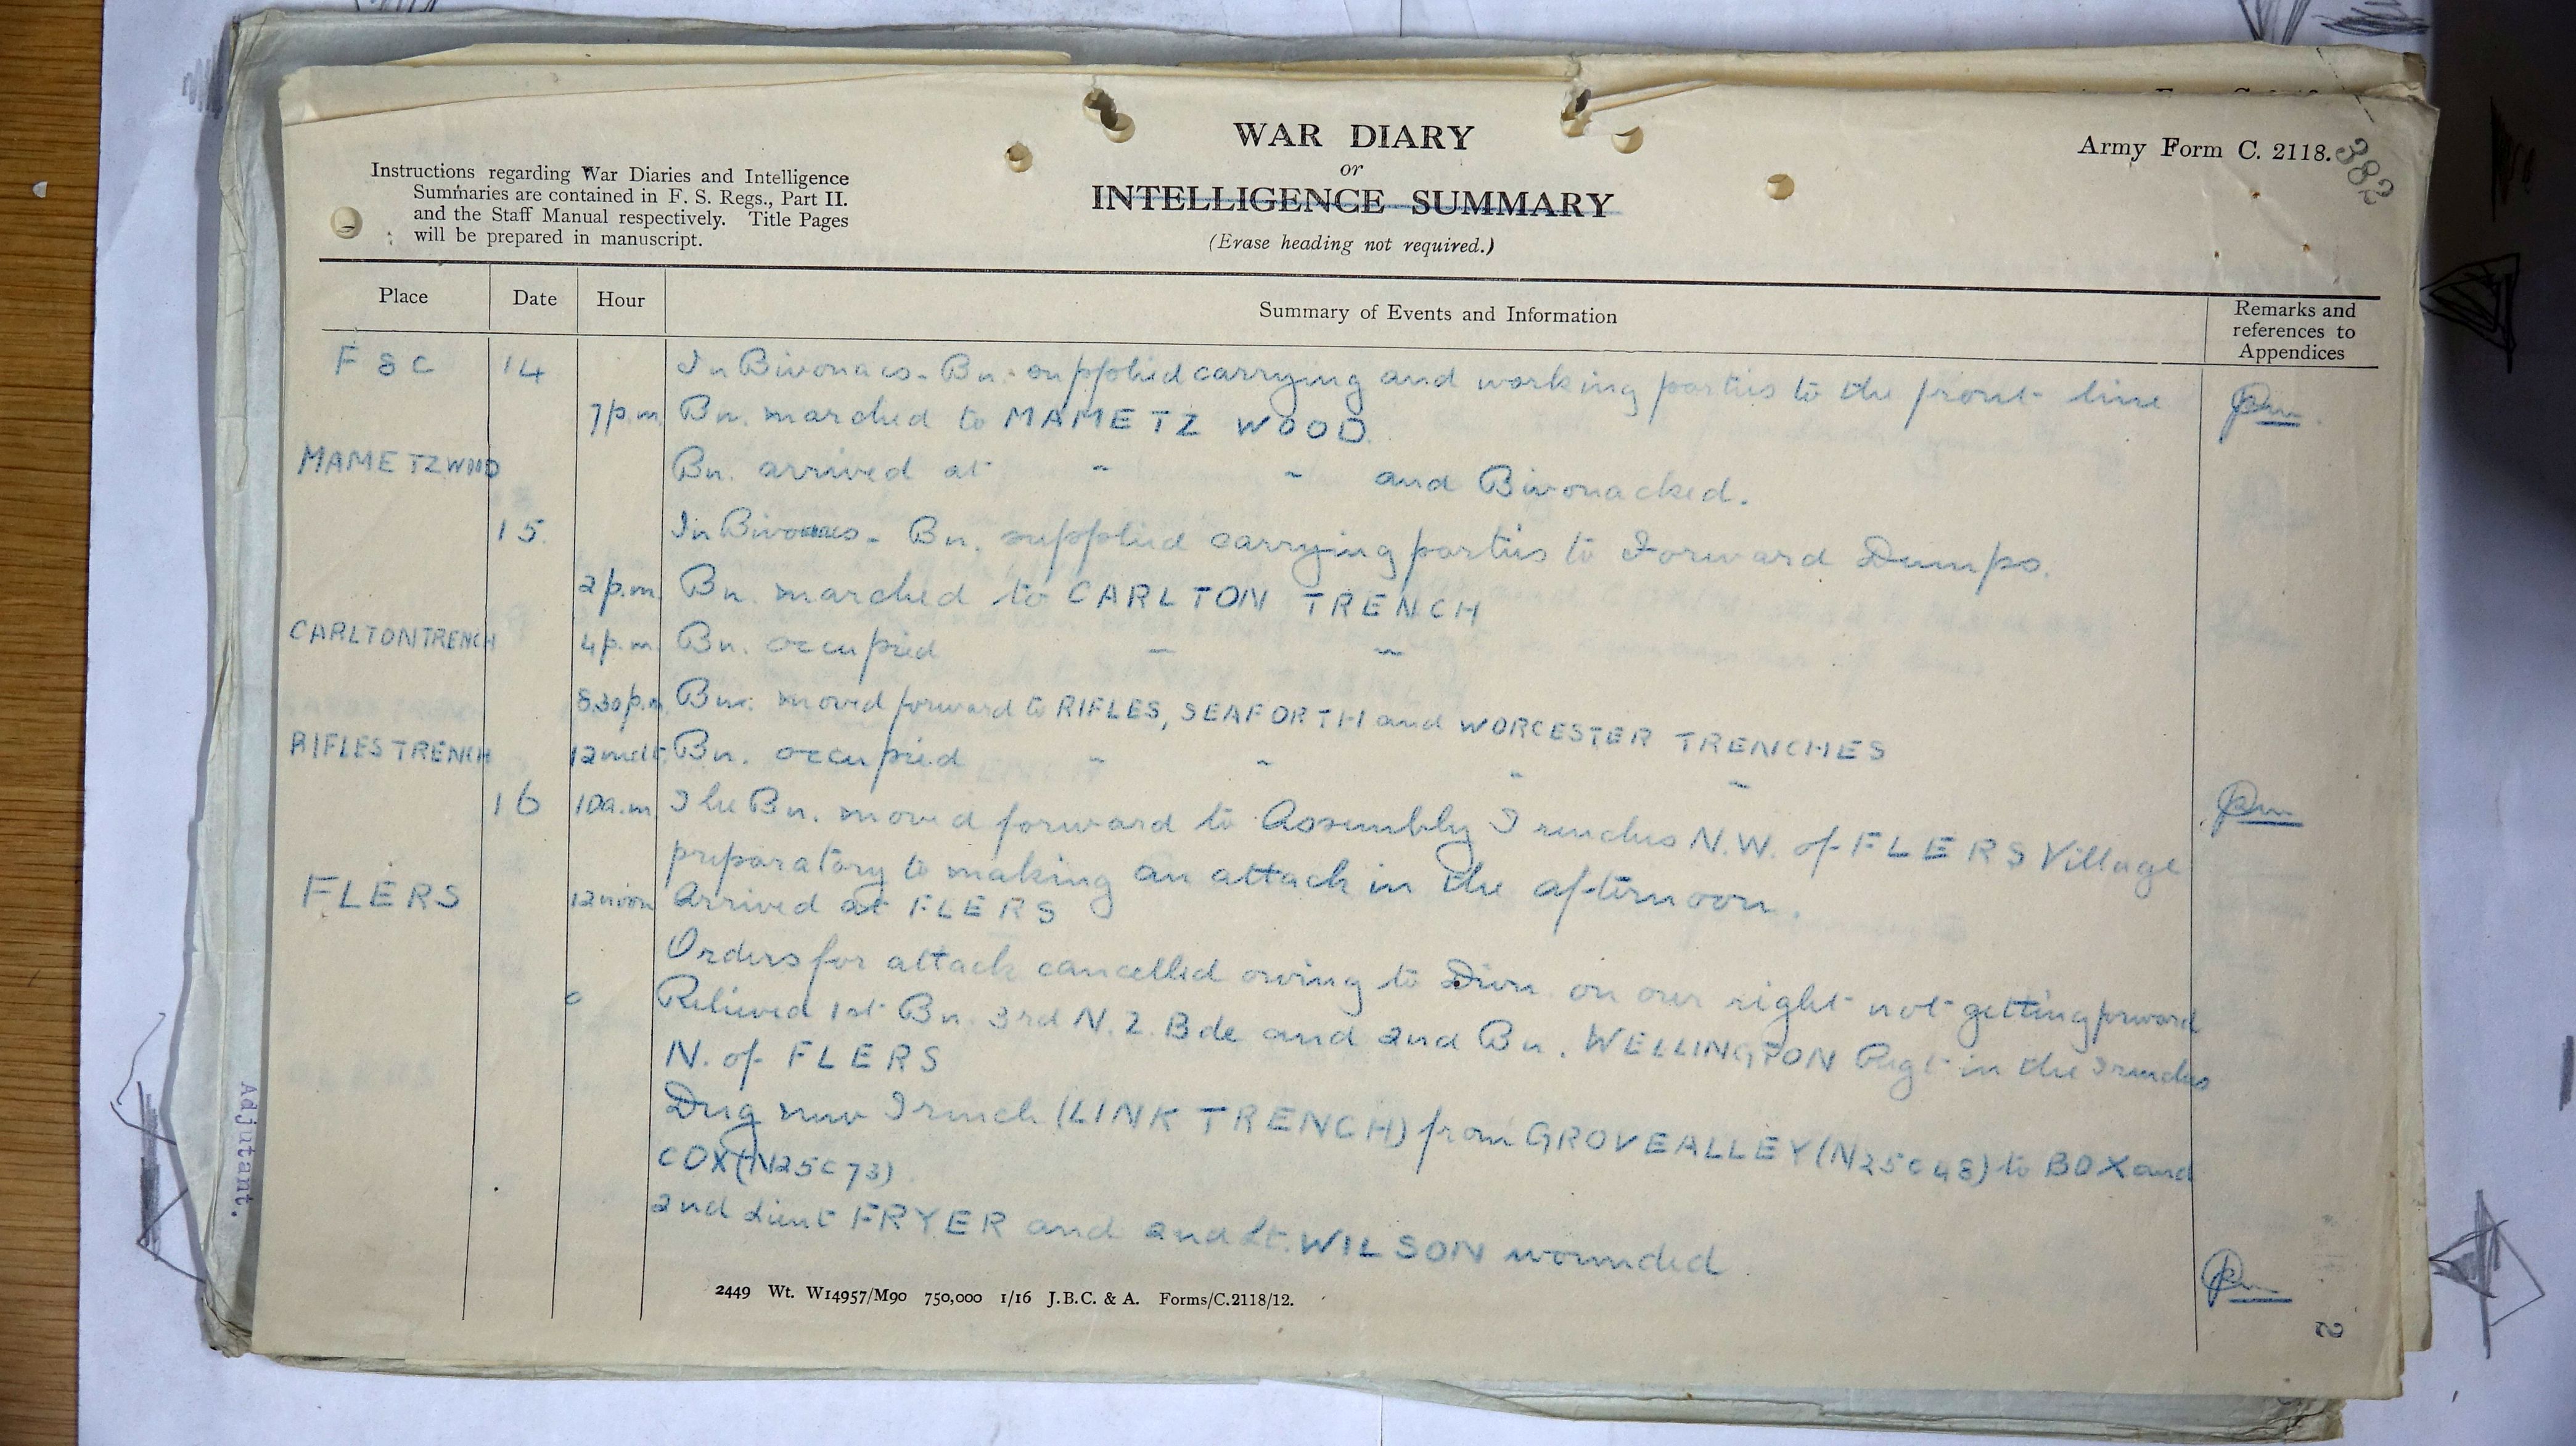 WAR DIARY
or
INTELLIGENCE SUMMARY
(Erase heading not required.)
Army Form C. 2118.
382
Instructions regarding War Diaries and Intelligence
Summaries are contained in F. S. Regs., Part II.
and the Staff Manual respectively. Title Pages
will be prepared in manuscript.
Place Date Hour Summary of Events and Information Remarks and references to Appendices
F 8 C 14 In Bivouacs - Bn. supplied carrying and working parties to the front line
7 p.m. Bn. marched to MAMETZ WOOD.
MAMETZ WOOD Bn. arrived at " " and Bivouacked.
15. In Bivouacs - Bn. supplied carrying parties to Forward Dumps.
2 p.m. Bn. marched to CARLTON TRENCH
CARLTON TRENCH 4 p.m. Bn. occupied " "
8.30 p.m. Bn. moved forward to RIFLES, SEAFORTH and WORCESTER TRENCHES
RIFLES TRENCH 12 mdt. Bn. occupied " " " "
16 10 a.m. The Bn. moved forward to Assembly Trenches N.W. of FLERS Village
preparatory to making an attack in the afternoon.
FLERS 12 noon Arrived at FLERS
Orders for attack cancelled owing to Divn on our right not getting forward
Relieved 1st Bn. 3rd N.Z. Bde and 2nd Bn. WELLINGTON Regt in the Trenches
N. of FLERS
Dug new Trench (LINK TRENCH) from GROVE ALLEY (N25c48) to BOX and
COX (N25c73)
2nd Lieut FRYER and 2nd Lt. WILSON wounded
2449 Wt. W14957/M90 750,000 1/16 J.B.C. & A. Forms/C.2118/12.
2
Adjutant.